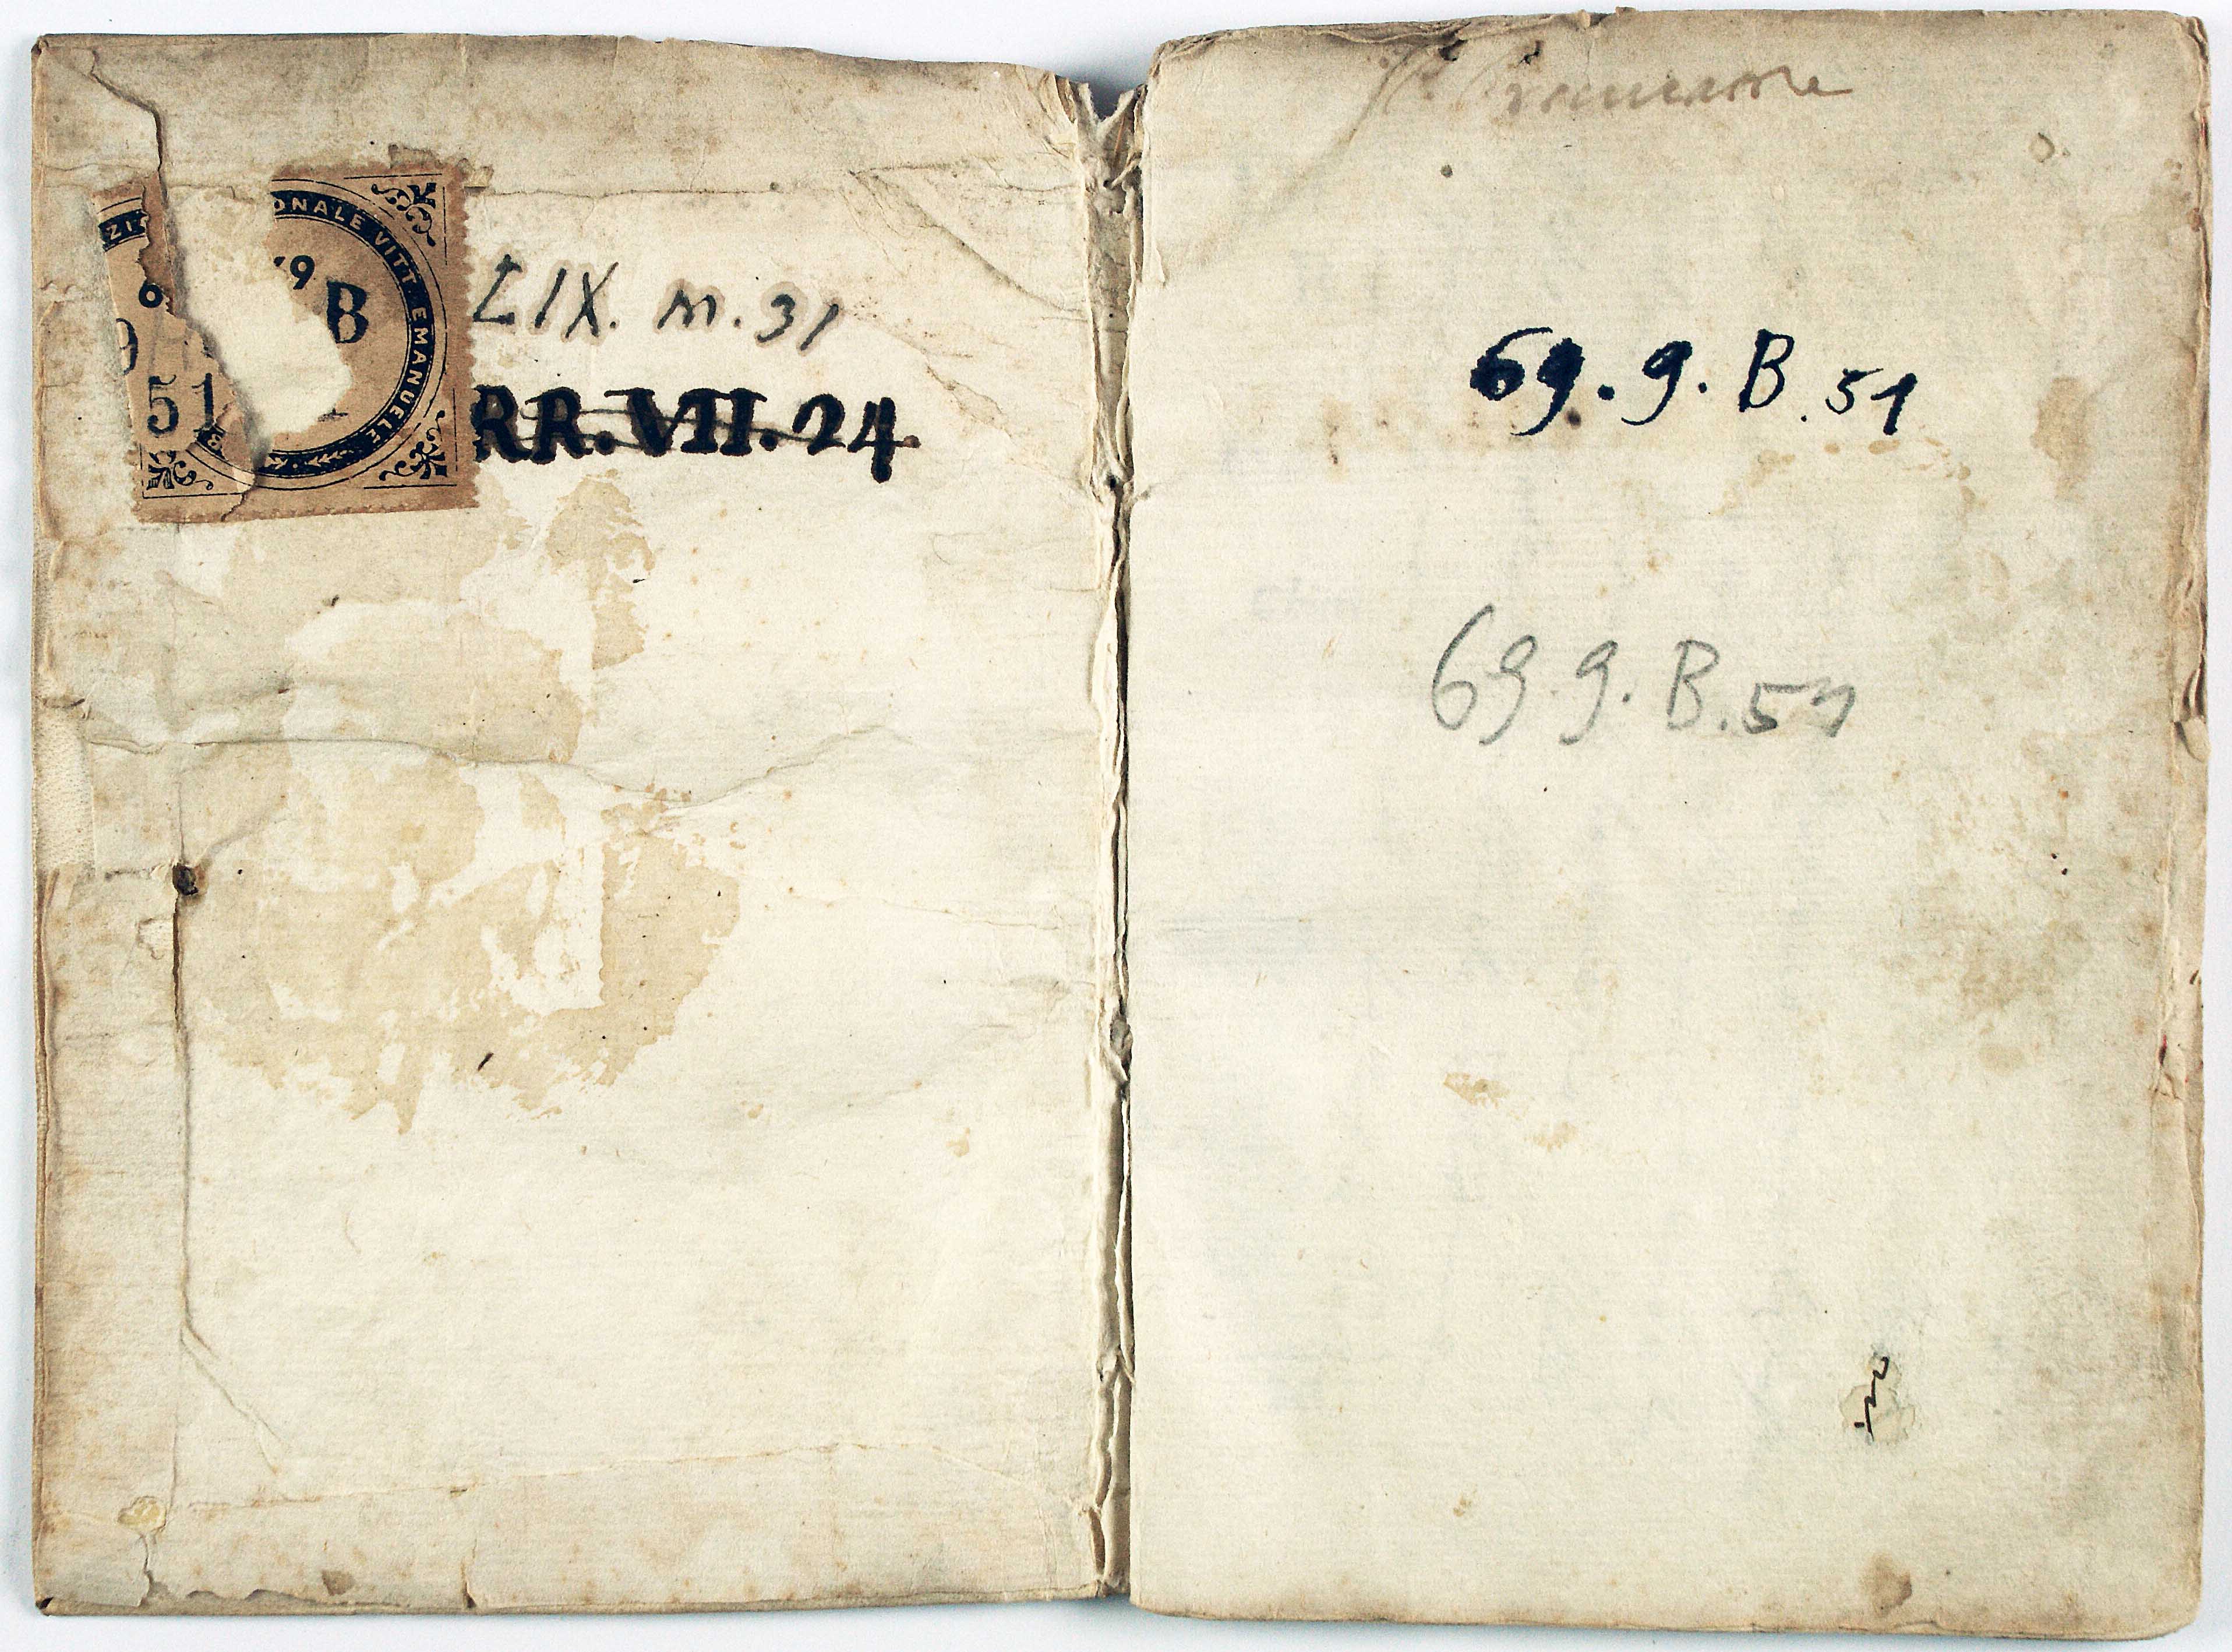 ZI
ONALE VITT. EMANUELE
69
B
9
51
LIX. m. 31
RR.VII.24
69. 9. B. 51
69 9. B. 51